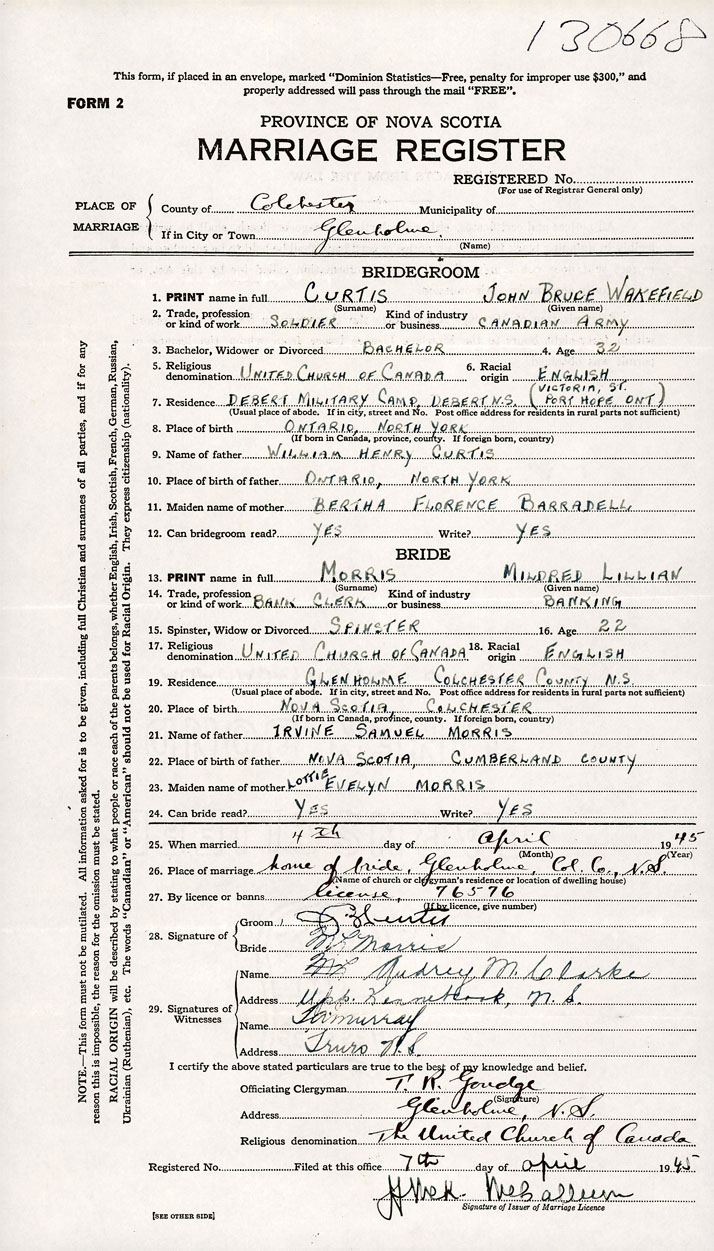 130668
This form, if placed in an envelope, marked "Dominion Statistics—Free, penalty for improper use $300," and
properly addressed will pass through the mail "FREE".
FORM 2
PROVINCE OF NOVA SCOTIA
MARRIAGE REGISTER
REGISTERED No.
(For use of Registrar General only)
PLACE OF MARRIAGE
County of Colchester Municipality of
If in City or Town Glenholme.
(Name)
BRIDEGROOM
1. PRINT name in full CURTIS JOHN BRUCE WAKEFIELD
(Surname) (Given name)
2. Trade, profession or kind of work SOLDIER Kind of industry or business CANADIAN ARMY
3. Bachelor, Widower or Divorced BACHELOR 4. Age 32
5. Religious denomination UNITED CHURCH OF CANADA 6. Racial origin ENGLISH
7. Residence DEBERT MILITARY CAMP, DEBERT N.S. (VICTORIA, ST. PORT HOPE ONT)
(Usual place of abode. If in city, street and No. Post office address for residents in rural parts not sufficient)
8. Place of birth ONTARIO, NORTH YORK
(If born in Canada, province, county. If foreign born, country)
9. Name of father WILLIAM HENRY CURTIS
10. Place of birth of father ONTARIO, NORTH YORK
11. Maiden name of mother BERTHA FLORENCE BARRADELL
12. Can bridegroom read? YES Write? YES
BRIDE
13. PRINT name in full MORRIS MILDRED LILLIAN
(Surname) (Given name)
14. Trade, profession or kind of work BANK CLERK Kind of industry or business BANKING
15. Spinster, Widow or Divorced SPINSTER 16. Age 22
17. Religious denomination UNITED CHURCH OF CANADA 18. Racial origin ENGLISH
19. Residence GLENHOLME COLCHESTER COUNTY N.S.
(Usual place of abode. If in city, street and No. Post office address for residents in rural parts not sufficient)
20. Place of birth NOVA SCOTIA, COLCHESTER
(If born in Canada, province, county. If foreign born, country)
21. Name of father IRVINE SAMUEL MORRIS
22. Place of birth of father NOVA SCOTIA, CUMBERLAND COUNTY
23. Maiden name of mother LOTTIE EVELYN MORRIS
24. Can bride read? YES Write? YES
25. When married 4th day of April 1945
(Month) (Year)
26. Place of marriage home of bride, Glenholme, Col. Co., N.S.
(Name of church or clergyman's residence or location of dwelling house)
27. By licence or banns license, 76576
(If by licence, give number)
28. Signature of
Groom JB Curtis
Bride M L Morris
29. Signatures of Witnesses
Name Audrey M. Clarke
Address Upp. Kennetcook, N.S.
Name Murray
Address Truro N.S.
I certify the above stated particulars are true to the best of my knowledge and belief.
Officiating Clergyman T. R. Goudge
(Signature)
Address Glenholme, N.S.
Religious denomination The United Church of Canada
Registered No. Filed at this office 7th day of April 1945
McCallum
Signature of Issuer of Marriage Licence
[SEE OTHER SIDE]
NOTE.—This form must not be mutilated. All information asked for is to be given, including full Christian and surnames of all parties, and if for any
reason this is impossible, the reason for the omission must be stated.
RACIAL ORIGIN will be described by stating to what people or race each of the parents belongs, whether English, Irish, Scottish, French, German, Russian,
Ukrainian (Ruthenian), etc. The words "Canadian" or "American" should not be used for Racial Origin. They express citizenship (nationality).